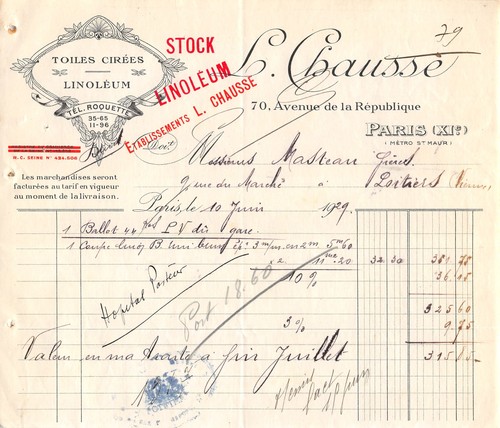 79
TOILES CIRÉES
LINOLÉUM
TÉL. ROQUETTE
35-65
11-96
STOCK
LINOLÉUM
ETABLISSEMENTS L. CHAUSSE
L. Chausse
70, Avenue de la République
PARIS (XIe)
(MÉTRO ST MAUR)
R.C. SEINE N° 424.806
Les marchandises seront
facturées au tarif en vigueur
au moment de la livraison.
Doit
Messieurs Masteau Frères
9 rue du Marché à Poitiers (Vienne)
Paris, le 10 Juin 1929.
1 Ballot 44 kgs P.V. dû gare.
1 Coupe 3 m/m en 2m 5m60
x2 11m20 32.30 361.75
10 % 36.05
Hopital Pasteur
Port 18.60
325 60
3 % 9.75
Valeur en ma traite à fin Juillet 315 85